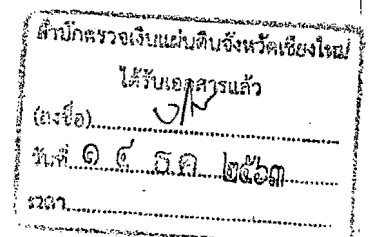 สำนักตรวจเงินแผ่นดินจังหวัดเชียงใหม่
ได้รับเอกสารแล้ว
(ลงชื่อ)
วันที่ ๑ ๔ ธ.ค. ๒๕๖๓
เวลา